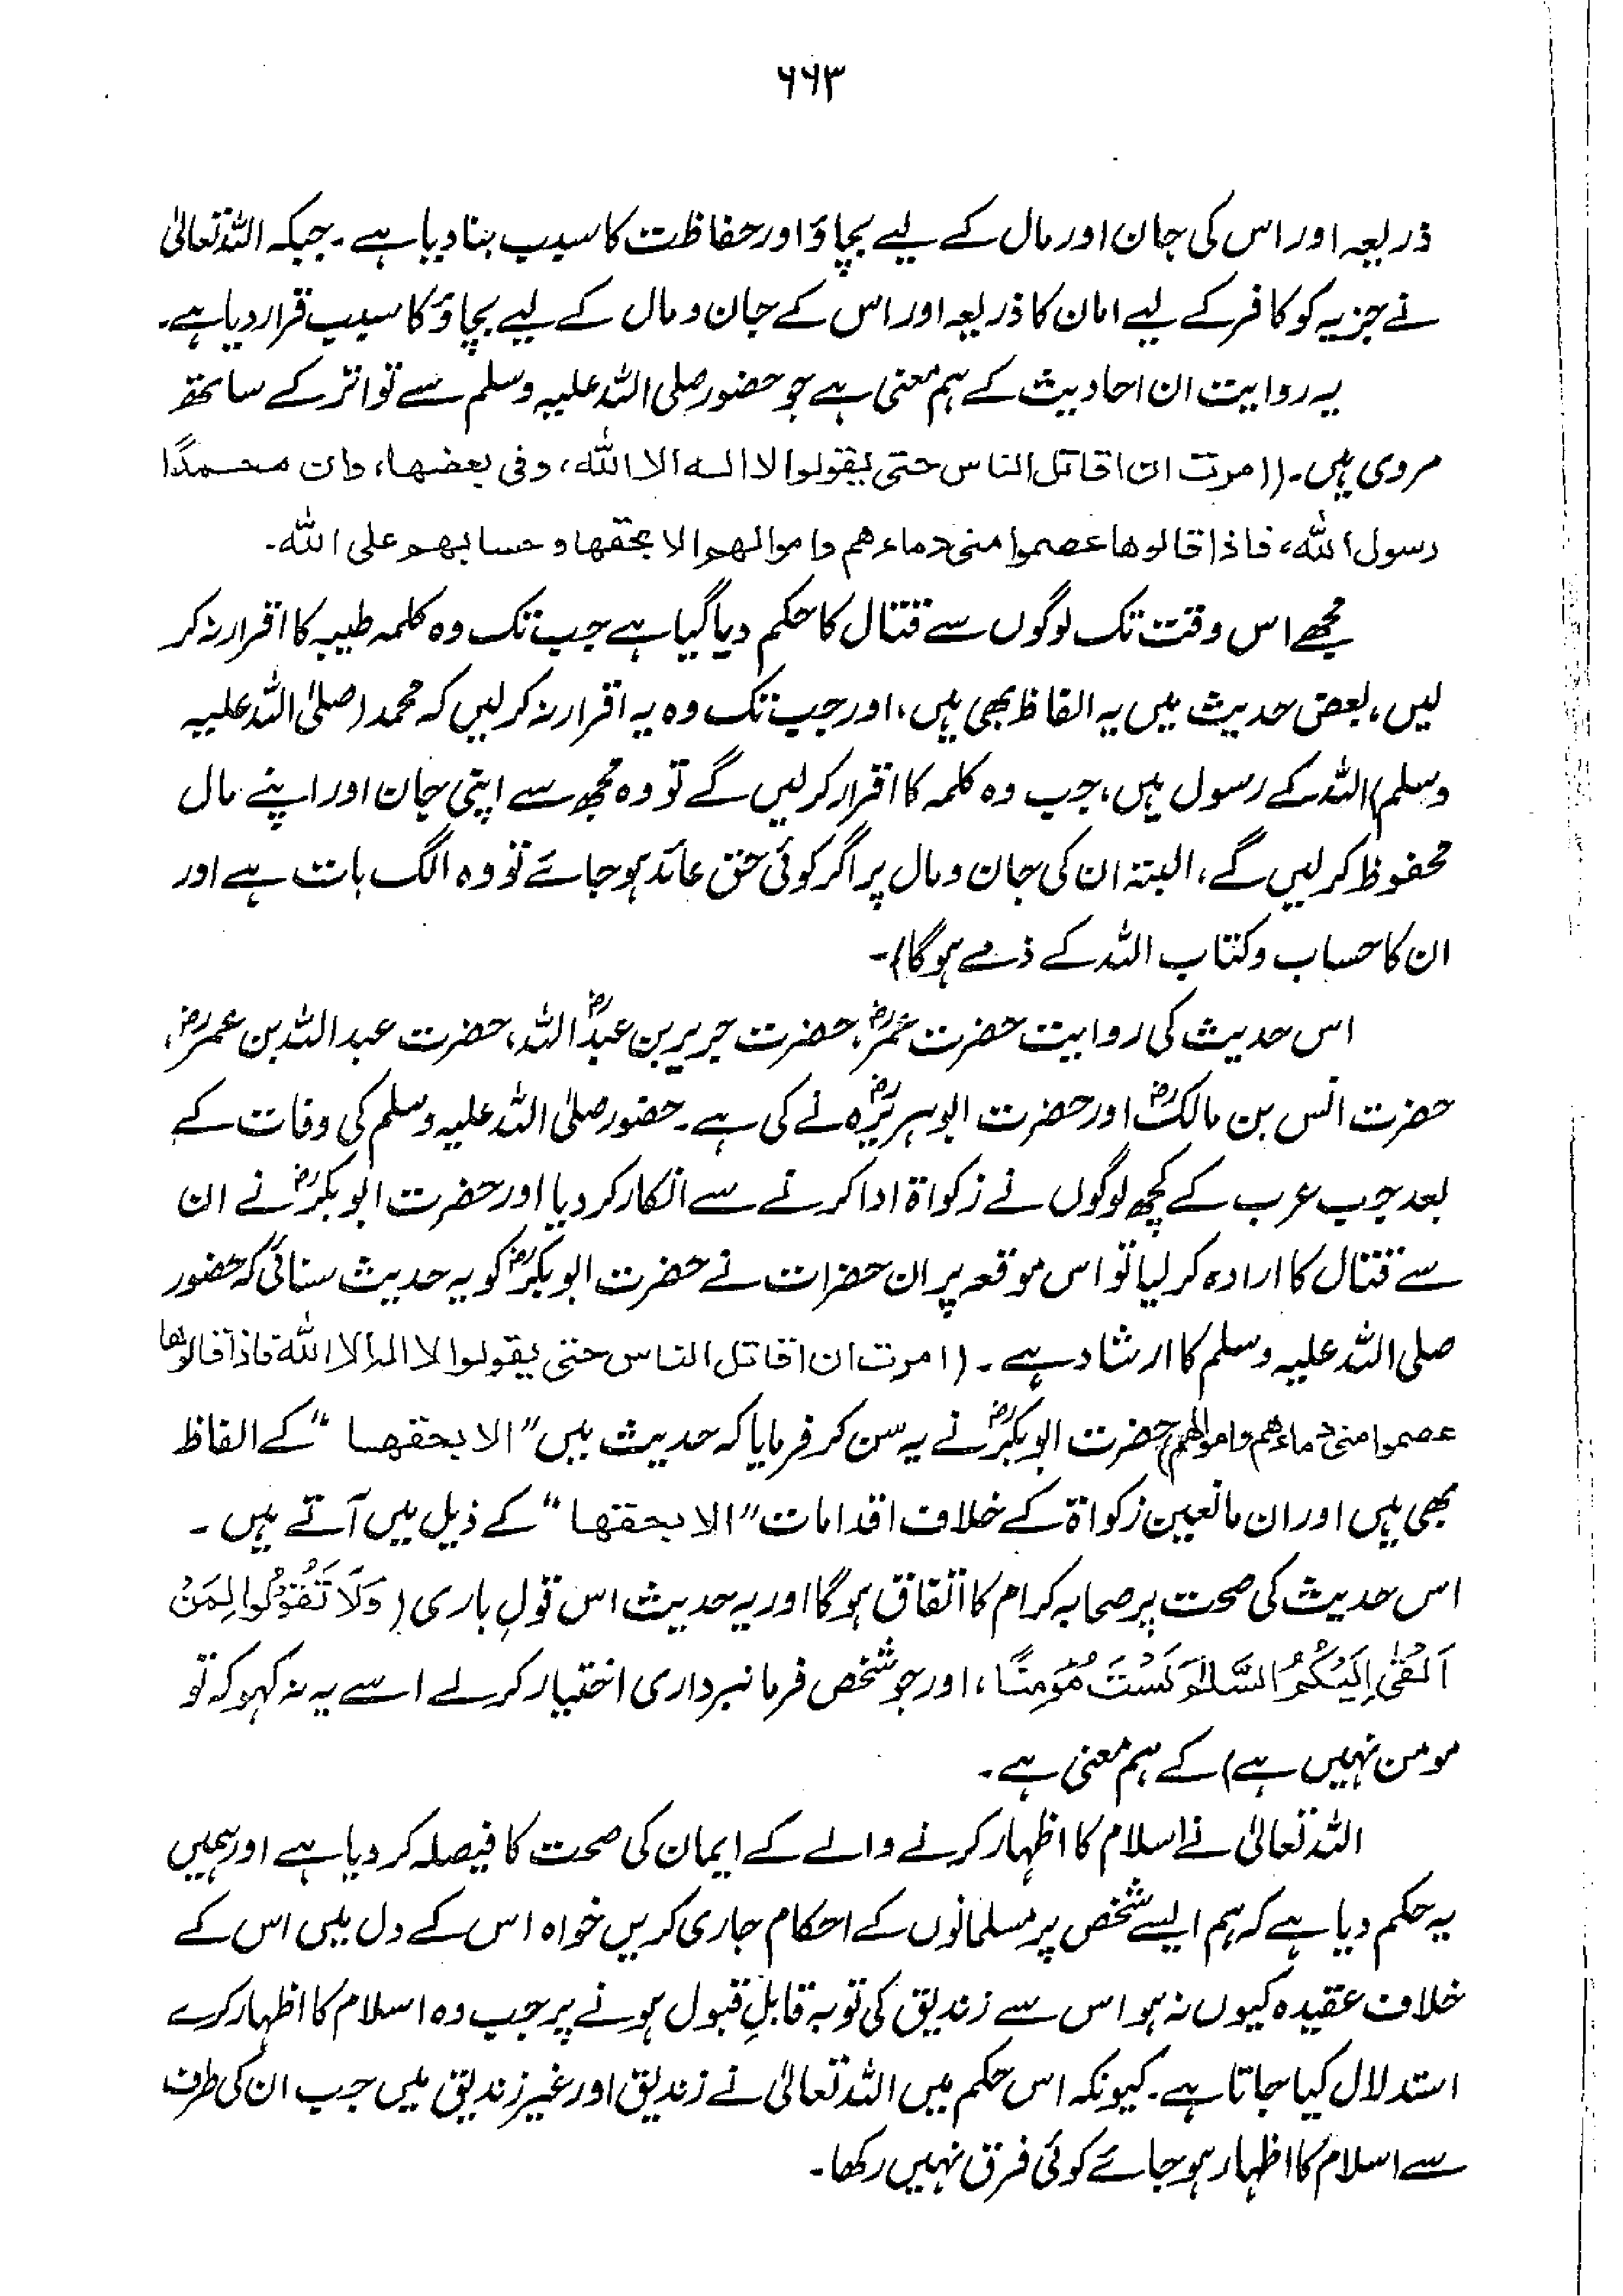 ۶۶۳
ذریعہ اور اس کی جان اور مال کے لیے بچاؤ اور حفاظت کا سبب بنا دیا ہے۔ جبکہ اللہ تعالیٰ
نے جزیہ کو کافر کے لیے امان کا ذریعہ اور اس کے جان و مال کے لیے بچاؤ کا سبب قرار دیا ہے۔
یہ روایت ان احادیث کے ہم معنی ہے جو حضور صلی اللہ علیہ وسلم سے تواتر کے ساتھ
مروی ہیں۔ (امرت ان اقاتل الناس حتی یقولوا لا الہ الا اللہ، وفی بعضہا، وان محمدًا
رسول اللہ، فاذا قالوھا عصموا منی دماءھم واموالھم الا بحقھا وحسابھم علی اللہ۔
مجھے اس وقت تک لوگوں سے قتال کا حکم دیا گیا ہے جب تک وہ کلمہ طیبہ کا اقرار نہ کر
لیں، بعض حدیث میں یہ الفاظ بھی ہیں، اور جب تک وہ یہ اقرار نہ کر لیں کہ محمد (صلی اللہ علیہ
وسلم) اللہ کے رسول ہیں، جب وہ کلمہ کا اقرار کر لیں گے تو وہ مجھ سے اپنی جان اور اپنے مال
محفوظ کر لیں گے، البتہ ان کی جان و مال پر اگر کوئی حق عائد ہو جائے تو وہ الگ بات ہے اور
ان کا حساب و کتاب اللہ کے ذمے ہوگا)۔
اس حدیث کی روایت حضرت عمرؓ، حضرت جریر بن عبدؓ اللہ، حضرت عبد اللہ بن عمرؓ،
حضرت انس بن مالکؓ اور حضرت ابوہریرؓہ نے کی ہے۔ حضور صلی اللہ علیہ وسلم کی وفات کے
بعد جب عرب کے کچھ لوگوں نے زکواۃ ادا کرنے سے انکار کر دیا اور حضرت ابوبکرؓ نے ان
سے قتال کا ارادہ کر لیا تو اس موقعہ پر ان حضرات نے حضرت ابوبکرؓ کو یہ حدیث سنائی کہ حضور
صلی اللہ علیہ وسلم کا ارشاد ہے۔ (امرت ان اقاتل الناس حتی یقولوا لا الہ الا اللہ فاذا قالوھا
عصموا منی دماءھم واموالھم) حضرت ابوبکرؓ نے یہ سن کر فرمایا کہ حدیث میں "الا بحقھا" کے الفاظ
بھی ہیں اور ان مانعین زکواۃ کے خلاف اقدامات "الا بحقھا" کے ذیل میں آتے ہیں۔
اس حدیث کی صحت پر صحابہ کرام کا اتفاق ہوگا اور یہ حدیث اس قولِ باری (وَلَا تَقُوْلُوا لِمَنْ
اَلْقٰی اِلَیْکُمُ السَّلَامَ لَسْتَ مُؤْمِنًا، اور جو شخص فرمانبرداری اختیار کر لے اسے یہ نہ کہو کہ تو
مومن نہیں ہے) کے ہم معنی ہے۔
اللہ تعالیٰ نے اسلام کا اظہار کرنے والے کے ایمان کی صحت کا فیصلہ کر دیا ہے اور ہمیں
یہ حکم دیا ہے کہ ہم ایسے شخص پر مسلمانوں کے احکام جاری کریں خواہ اس کے دل میں اس کے
خلاف عقیدہ کیوں نہ ہو اس سے زندیق کی توبہ قابلِ قبول ہونے پر جب وہ اسلام کا اظہار کرے
استدلال کیا جاتا ہے۔ کیونکہ اس حکم میں اللہ تعالیٰ نے زندیق اور غیر زندیق میں جب ان کی طرف
سے اسلام کا اظہار ہو جائے کوئی فرق نہیں رکھا۔